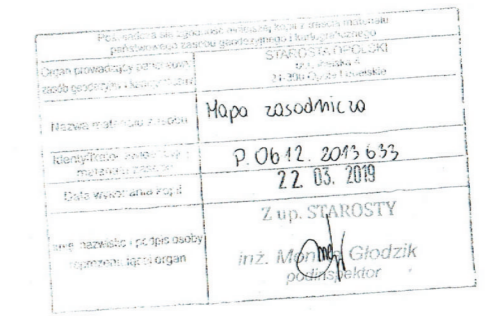 Poświadcza się zgodność niniejszej kopii z treścią materiału
państwowego zasobu geodezyjnego i kartograficznego
Organ prowadzący państwowy
zasób geodezyjny i kartograficzny
STAROSTA OPOLSKI
ul. Lubelska 4
24-300 Opole Lubelskie
Nazwa materiału zasobu
Mapa zasadnicza
Identyfikator ewidencyjny
materiału zasobu
P. 0612. 2013 633
Data wykonania kopii
22. 03. 2019
Imię, nazwisko i podpis osoby
reprezentującej organ
Z up. STAROSTY
inż. Głodzik
podinspektor